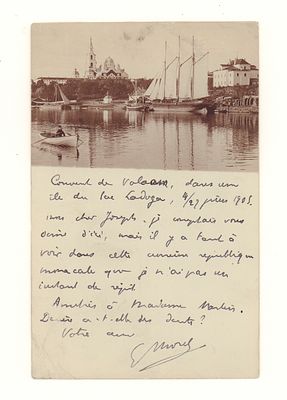 Couvent de Valaam, dans une
île du lac Ladoga, 4/27 juin 1905.
mon cher Joseph, je comptais vous
écrire d'ici, mais il y a tant à
voir dans cette curieuse république
monacale que je n'ai pas un
instant de répit.
Amitiés à Madame
a-t-elle des dents ?
Votre ami